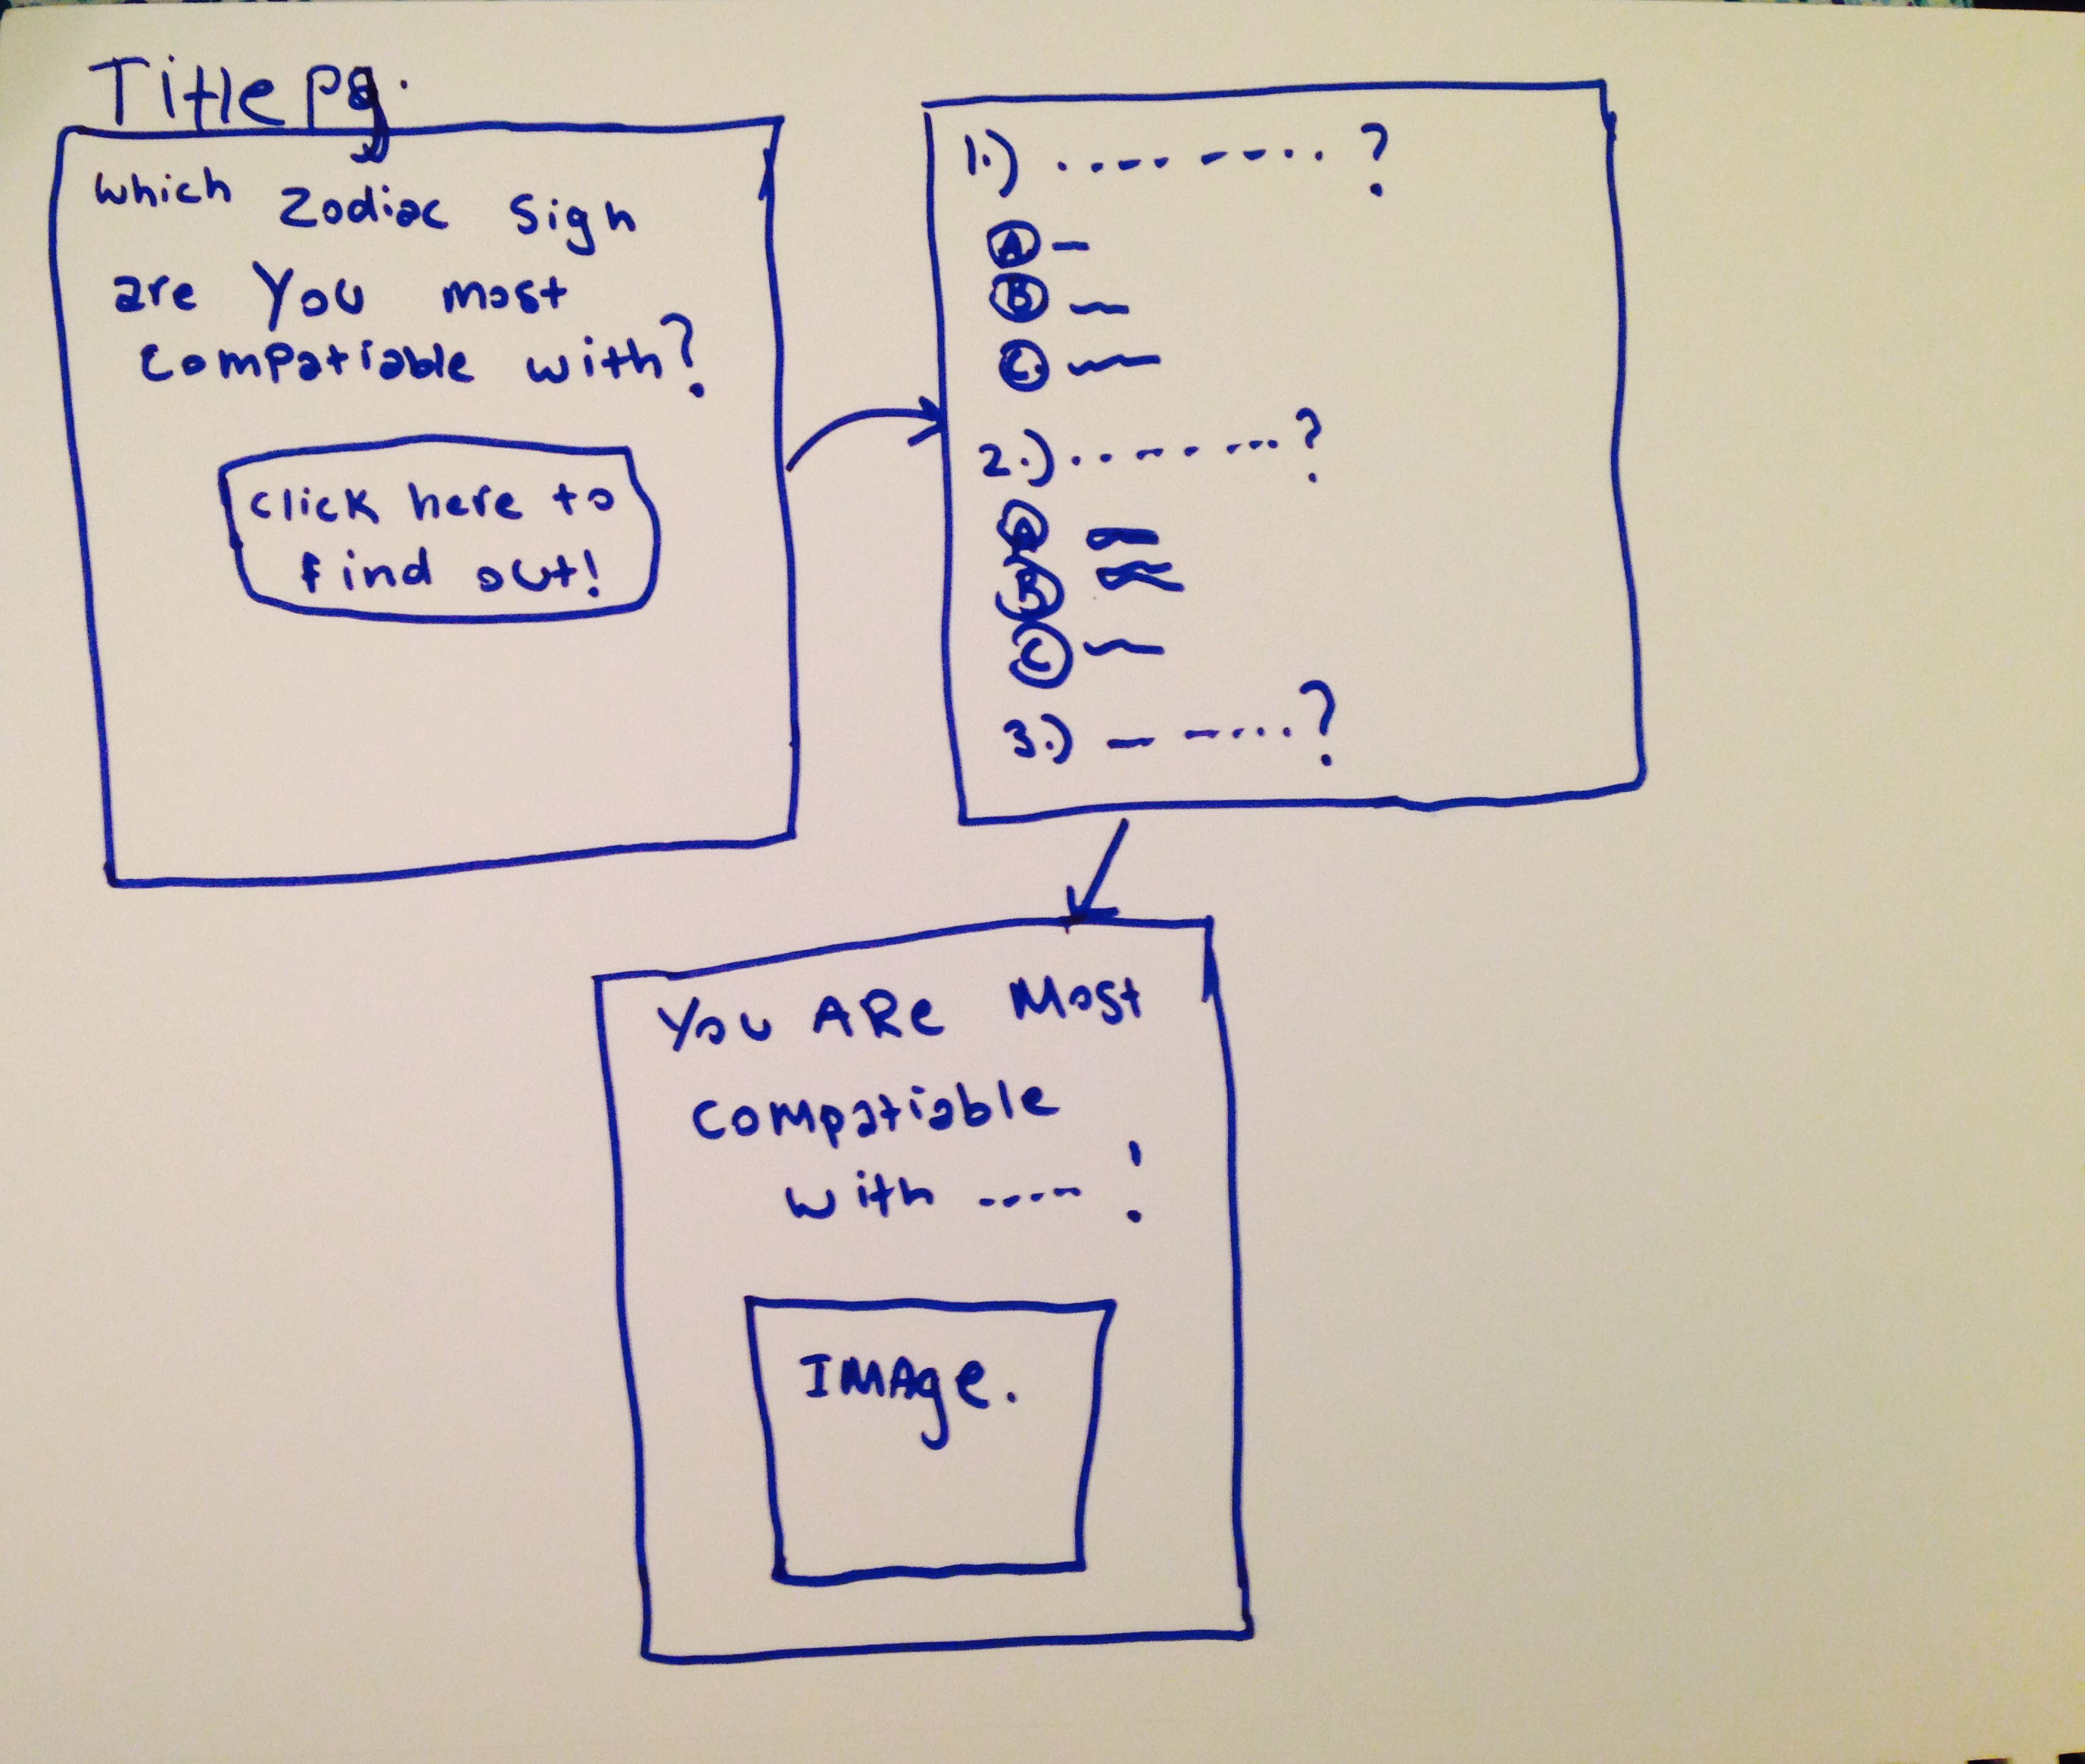 Title pg.
which zodiac sign
are You most
compatiable with?
click here to
find out!
1.) ?
A
B
C
2.) ?
C
3.) ?
YOU ARe Most
compatiable
with ---- !
IMAge.